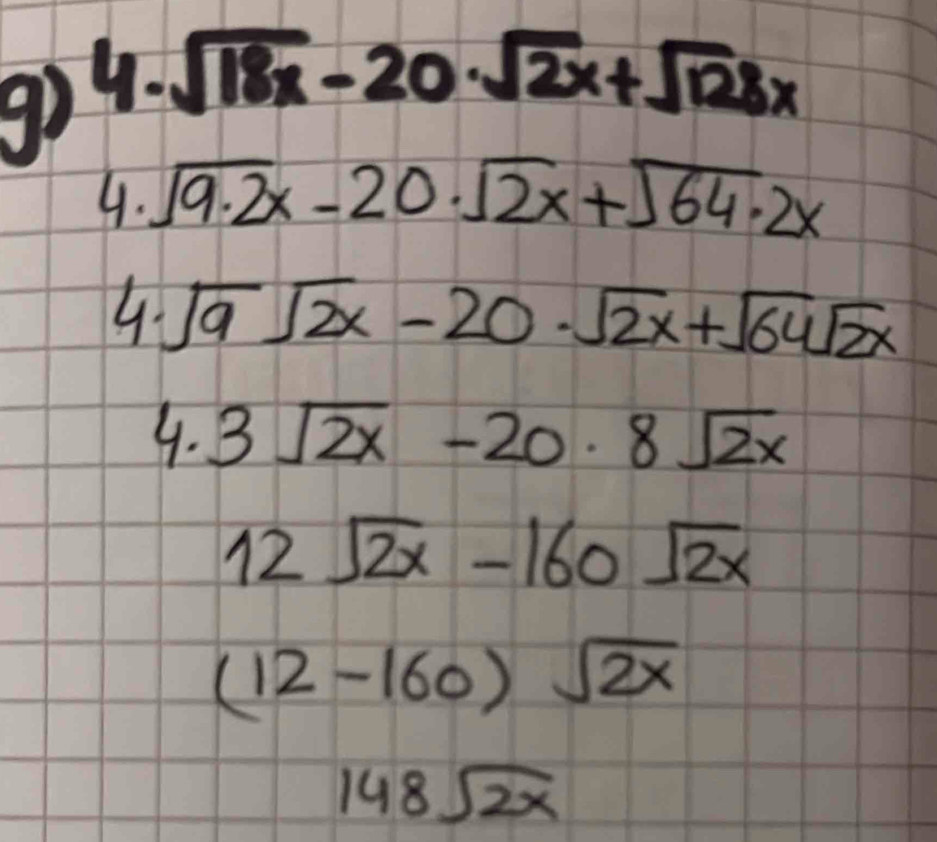 g) 4·√18x - 20·√2x + √128x
4·√9·2x - 20·√2x + √64·2x
4·√9 √2x - 20·√2x + √64√2x
4·3 √2x - 20·8 √2x
12 √2x - 160 √2x
(12 - 160) √2x
148√2x